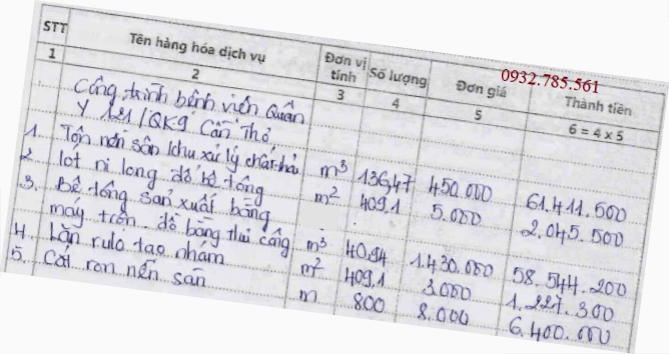 STT Tên hàng hóa dịch vụ Đơn vị tính Số lượng Đơn giá Thành tiền
0932.785.561
1 2 3 4 5 6 = 4 x 5
Công trình bệnh viện Quân
Y 121/QK9 Cần Thơ
1. Tôn nền sân khu xử lý chất thải m³ 136,47 450.000 61.411.500
2. lót ni long đổ bê tông m² 409,1 5.000 2.045.500
3. Bê tông sản xuất bằng
máy trộn. đổ bằng thủ công m³ 40,94 1.430.000 58.544.200
4. Lăn rulo tạo nhám m² 409,1 3.000 1.227.300
5. Cắt ron nền sân m 800 8.000 6.400.000